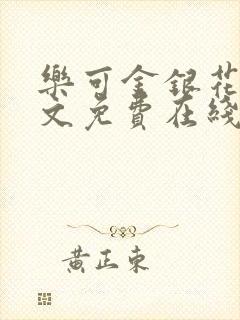 樂可金銀花
文免費在綫
黃正東